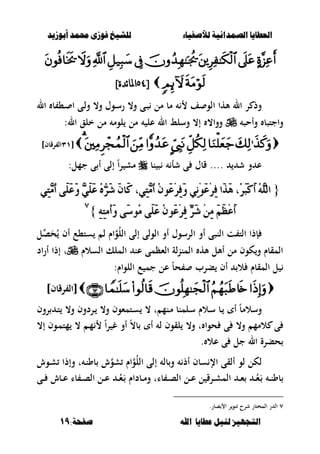 العطايا الصمدانية للأصفياء للشيخ فوزى محمد أبوزيد
أَعِزَّةٍ عَلَى ٱلْكَٰفِرِينَ يُجَٰهِدُونَ فِى سَبِيلِ ٱللَّهِ وَلَا يَخَافُونَ
لَوْمَةَ لَآئِمٍ [٥٤المائدة]
وذكر الله هذا الوصف لأنه ما من نبى ولا رسول ولا ولى اصطفاه الله
واجتباه وأحبه ووالاه إلا وسلط الله عليه من يلومه من خلق الله:
وَكَذَٰلِكَ جَعَلْنَا لِكُلِّ نَبِىٍّ عَدُوًّا مِّنَ ٱلْمُجْرِمِينَ [٣١الفرقان]
عدو شديد .... قال فى شأنه نبينا ﷺ مشيراً إلى أبى جهل:
{ اللَّهُ أَكْبَرُ، هَذَا فِرْعَوْنِي وَفِرْعَوْنُ أُمَّتِي، كَانَ شَرُّهُ عَلَيَّ وَعَلَى أُمَّتِي
أَعْظَمَ مِنْ شَرِّ فِرْعَوْنَ عَلَى مُوسَى وَأُمَّتِهِ } ٧
فإذا التفت النبى أو الرسول أو الولى إلى اللُوَّام لم يستطع أن يُحَصِّل
المقام ويكون من أهل هذه المنزلة العظمى عند الملك السلام ﷻ، إذا أراد
نيل المقام فلابد أن يضرب صفحاً عن جميع اللوام:
وَإِذَا خَاطَبَهُمُ ٱلْجَٰهِلُونَ قَالُوا۟ سَلَٰمًا ﴿٦٣﴾ [الفرقان]
وسلاماً أى يا سلام سلمنا منهم، لا يستمعون ولا يردون ولا يتدبرون
فى كلامهم ولا فى فحواه، ولا يلقون له أى بالاً أو غيراً لأنهم لا يهتمون إلا
بحضرة الله جل فى علاه.
لكن لو ألقى الإنسان أذنه وباله إلى اللُوَّام تشوَّش باطنه، وإذا تشوش
باطنه بَعُدَ بعد المشرقين عن الصفاء، ومادام بَعُدَ عن الصفاء عاش فى
٧ الدر المختار شرح تنوير الأبصار.
التجهيز لنيل عطايا الله صفحة:١٩